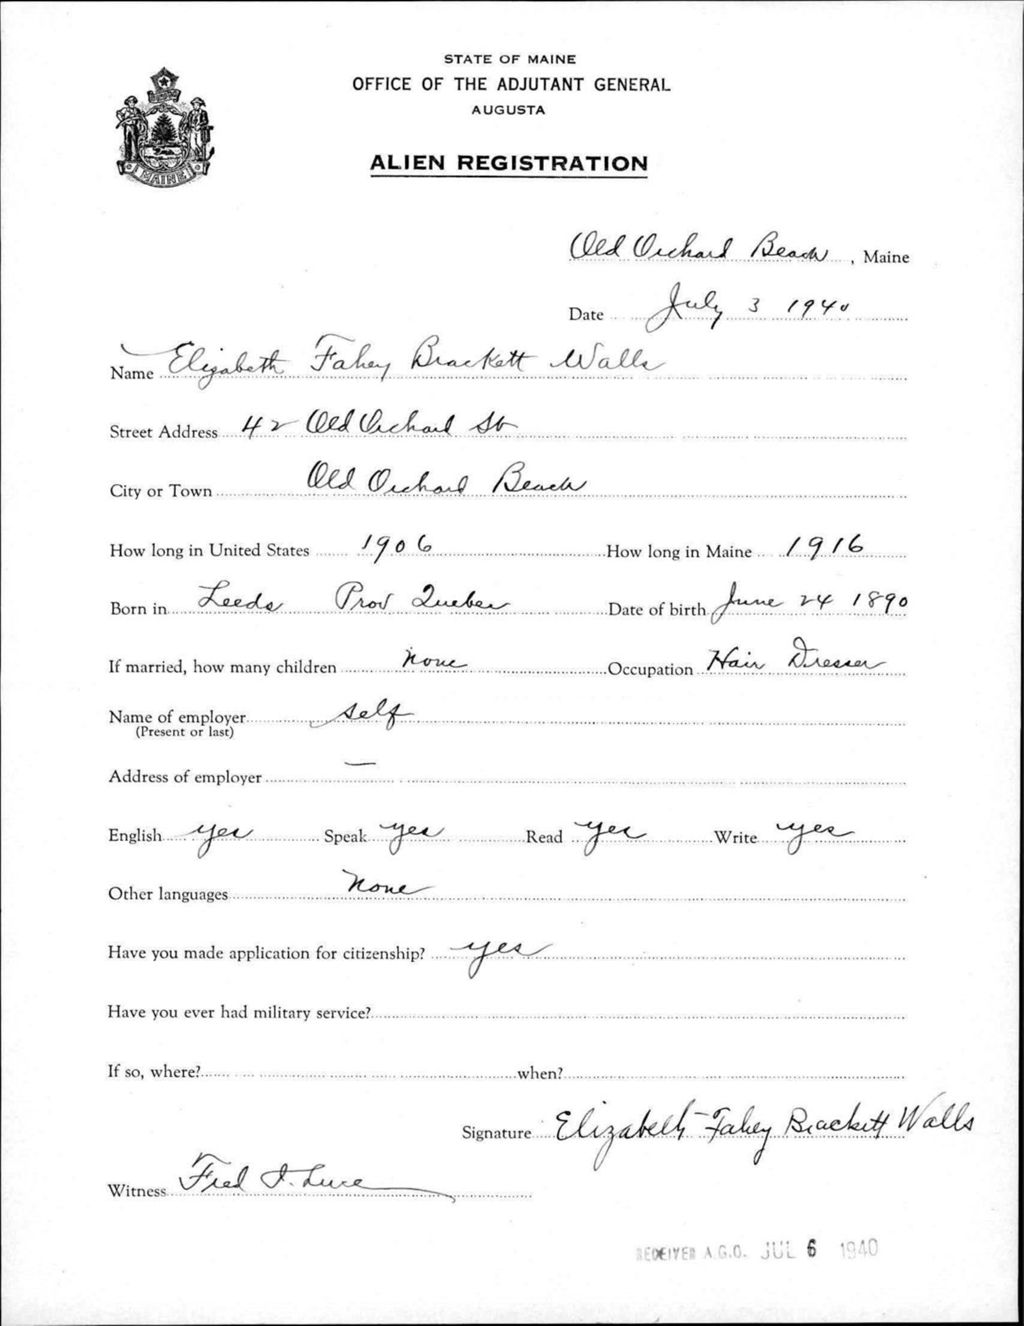 STATE OF MAINE
OFFICE OF THE ADJUTANT GENERAL
AUGUSTA
ALIEN REGISTRATION
MAINE
Old Orchard Beach, Maine
Date July 3 1940
Name Elizabeth Fahey Brackett Walls
Street Address 42 Old Orchard St
City or Town Old Orchard Beach
How long in United States 1906 How long in Maine 1916
Born in Leeds Prov Quebec Date of birth June 24 1890
If married, how many children none Occupation Hair Dresser
Name of employer self
(Present or last)
Address of employer —
English yes Speak yes Read yes Write yes
Other languages None
Have you made application for citizenship? yes
Have you ever had military service?
If so, where? when?
Signature Elizabeth Fahey Brackett Walls
Witness Fred I. Luce
RECEIVED A.G.O. JUL 6 1940